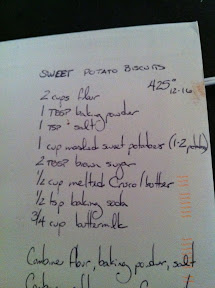 SWEET POTATO BISCUITS
425°
12-16
2 cups flour
1 TBSP baking powder
1 TSP salt
1 cup mashed sweet potatoes (1-2 potatoes)
2 TBSP brown sugar
1/2 cup melted Crisco/butter
1/2 tsp baking soda
3/4 cup buttermilk
Combine flour, baking powder, salt